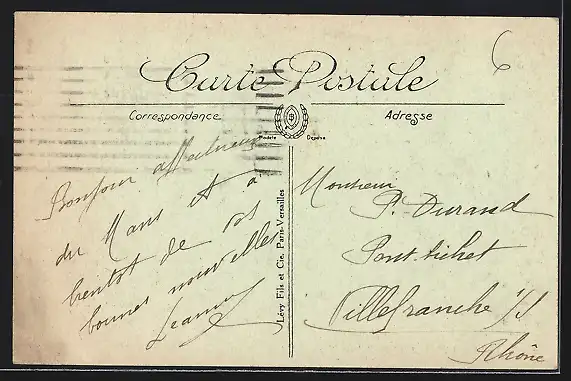 6
Carte Postale
Correspondance
Adresse
Modèle Déposé
Bonjour affectueux
du Mans et à
bientôt de vos
bonnes nouvelles
Lévy Fils et Cie, Paris-Versailles
Monsieur
P. Durand
Pont-
Villefranche s/S
Rhône